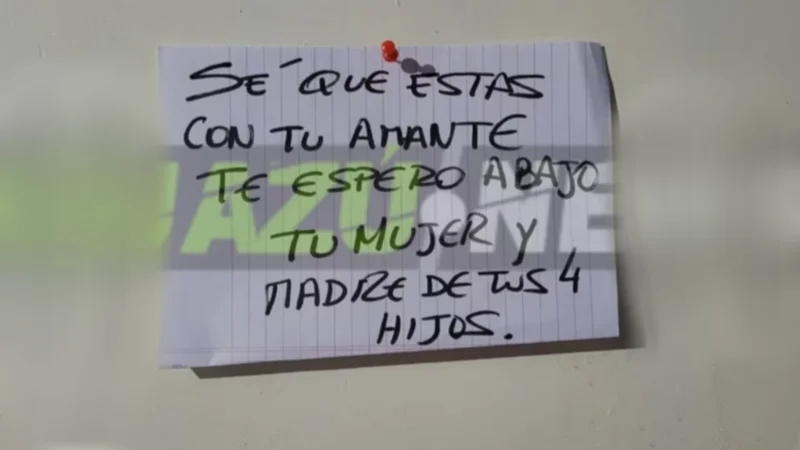 SÉ QUE ESTAS
CON TU AMANTE
TE ESPERO ABAJO
TU MUJER Y
MADRE DE TUS 4
HIJOS.